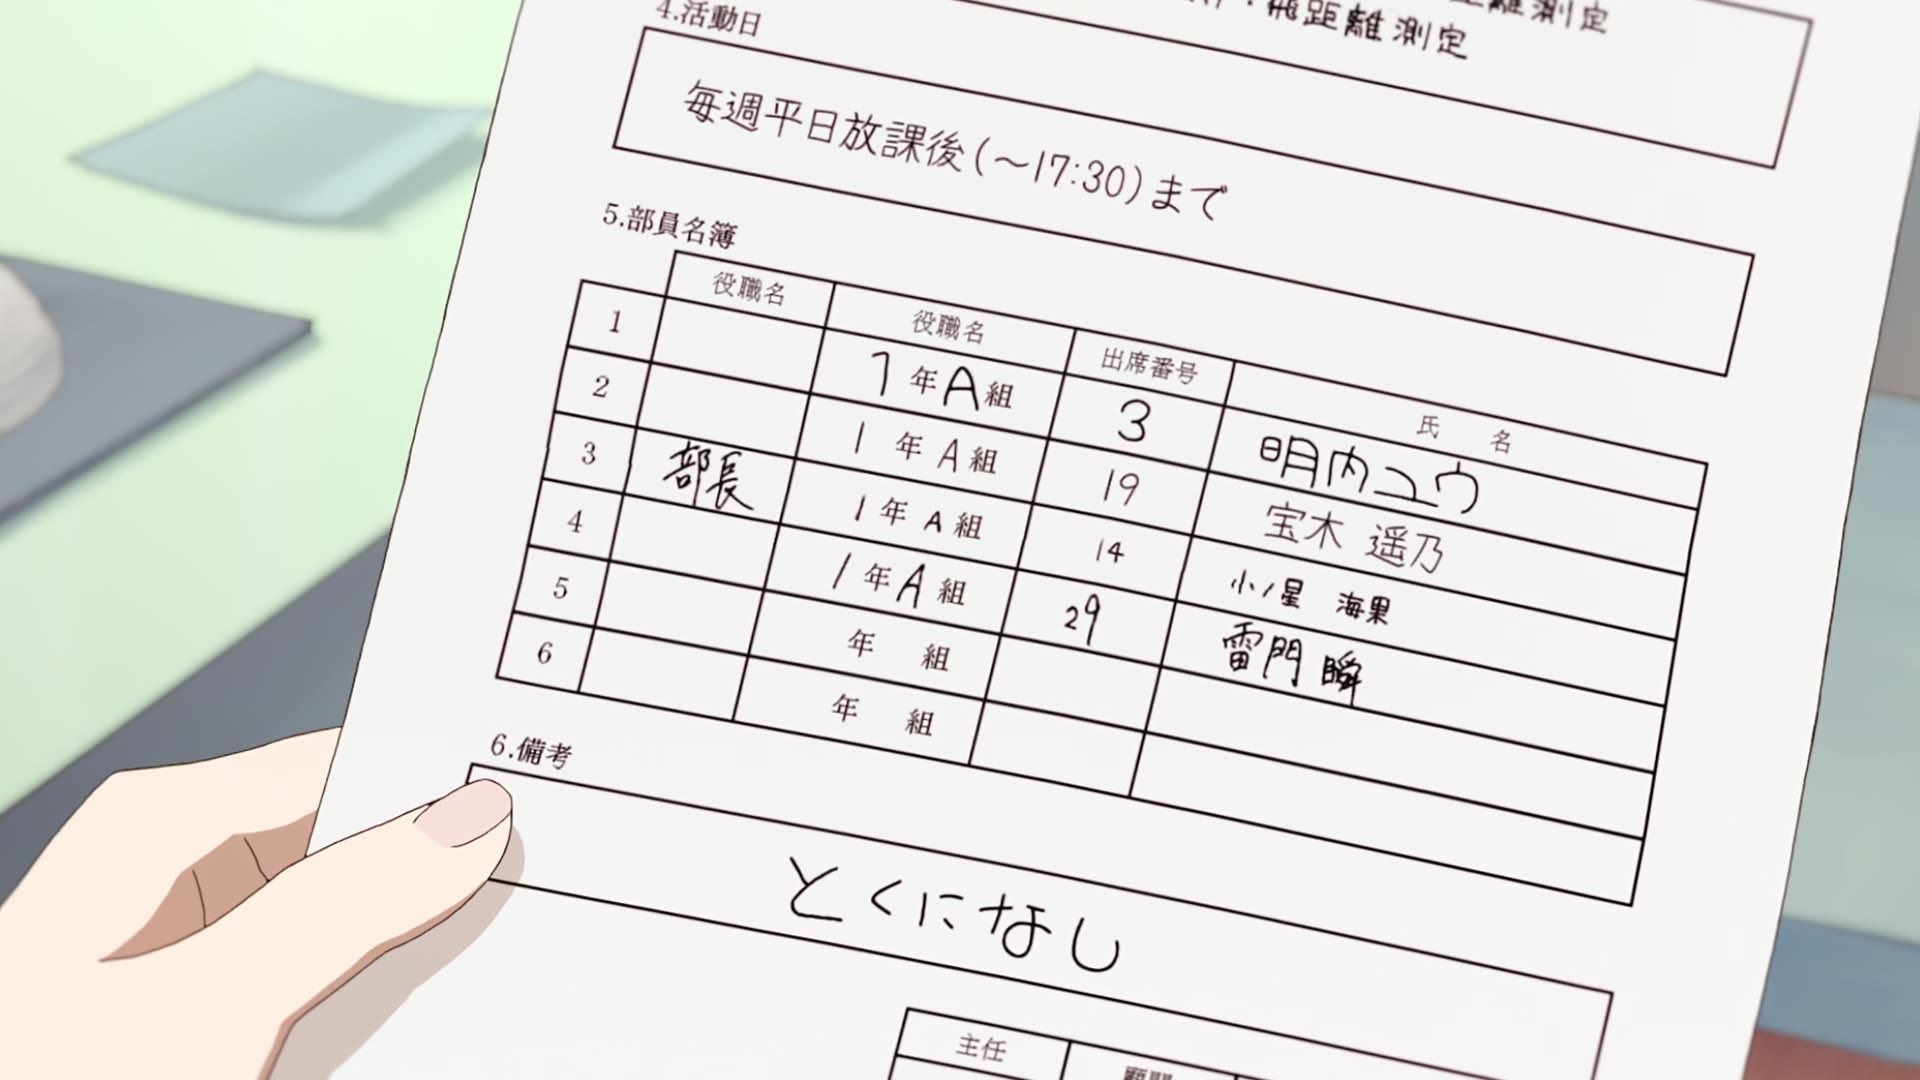 飛距離測定
距離測定
4.活動日
毎週平日放課後(～17:30)まで
5.部員名簿
役職名 役職名 出席番号 氏 名
1 1年A組 3 明内ユウ
2 1年A組 19 宝木 遥乃
3 部長 1年A組 14 小ノ星 海果
4 1年A組 29 雷門 瞬
5 年 組
6 年 組
6.備考
とくになし
主任